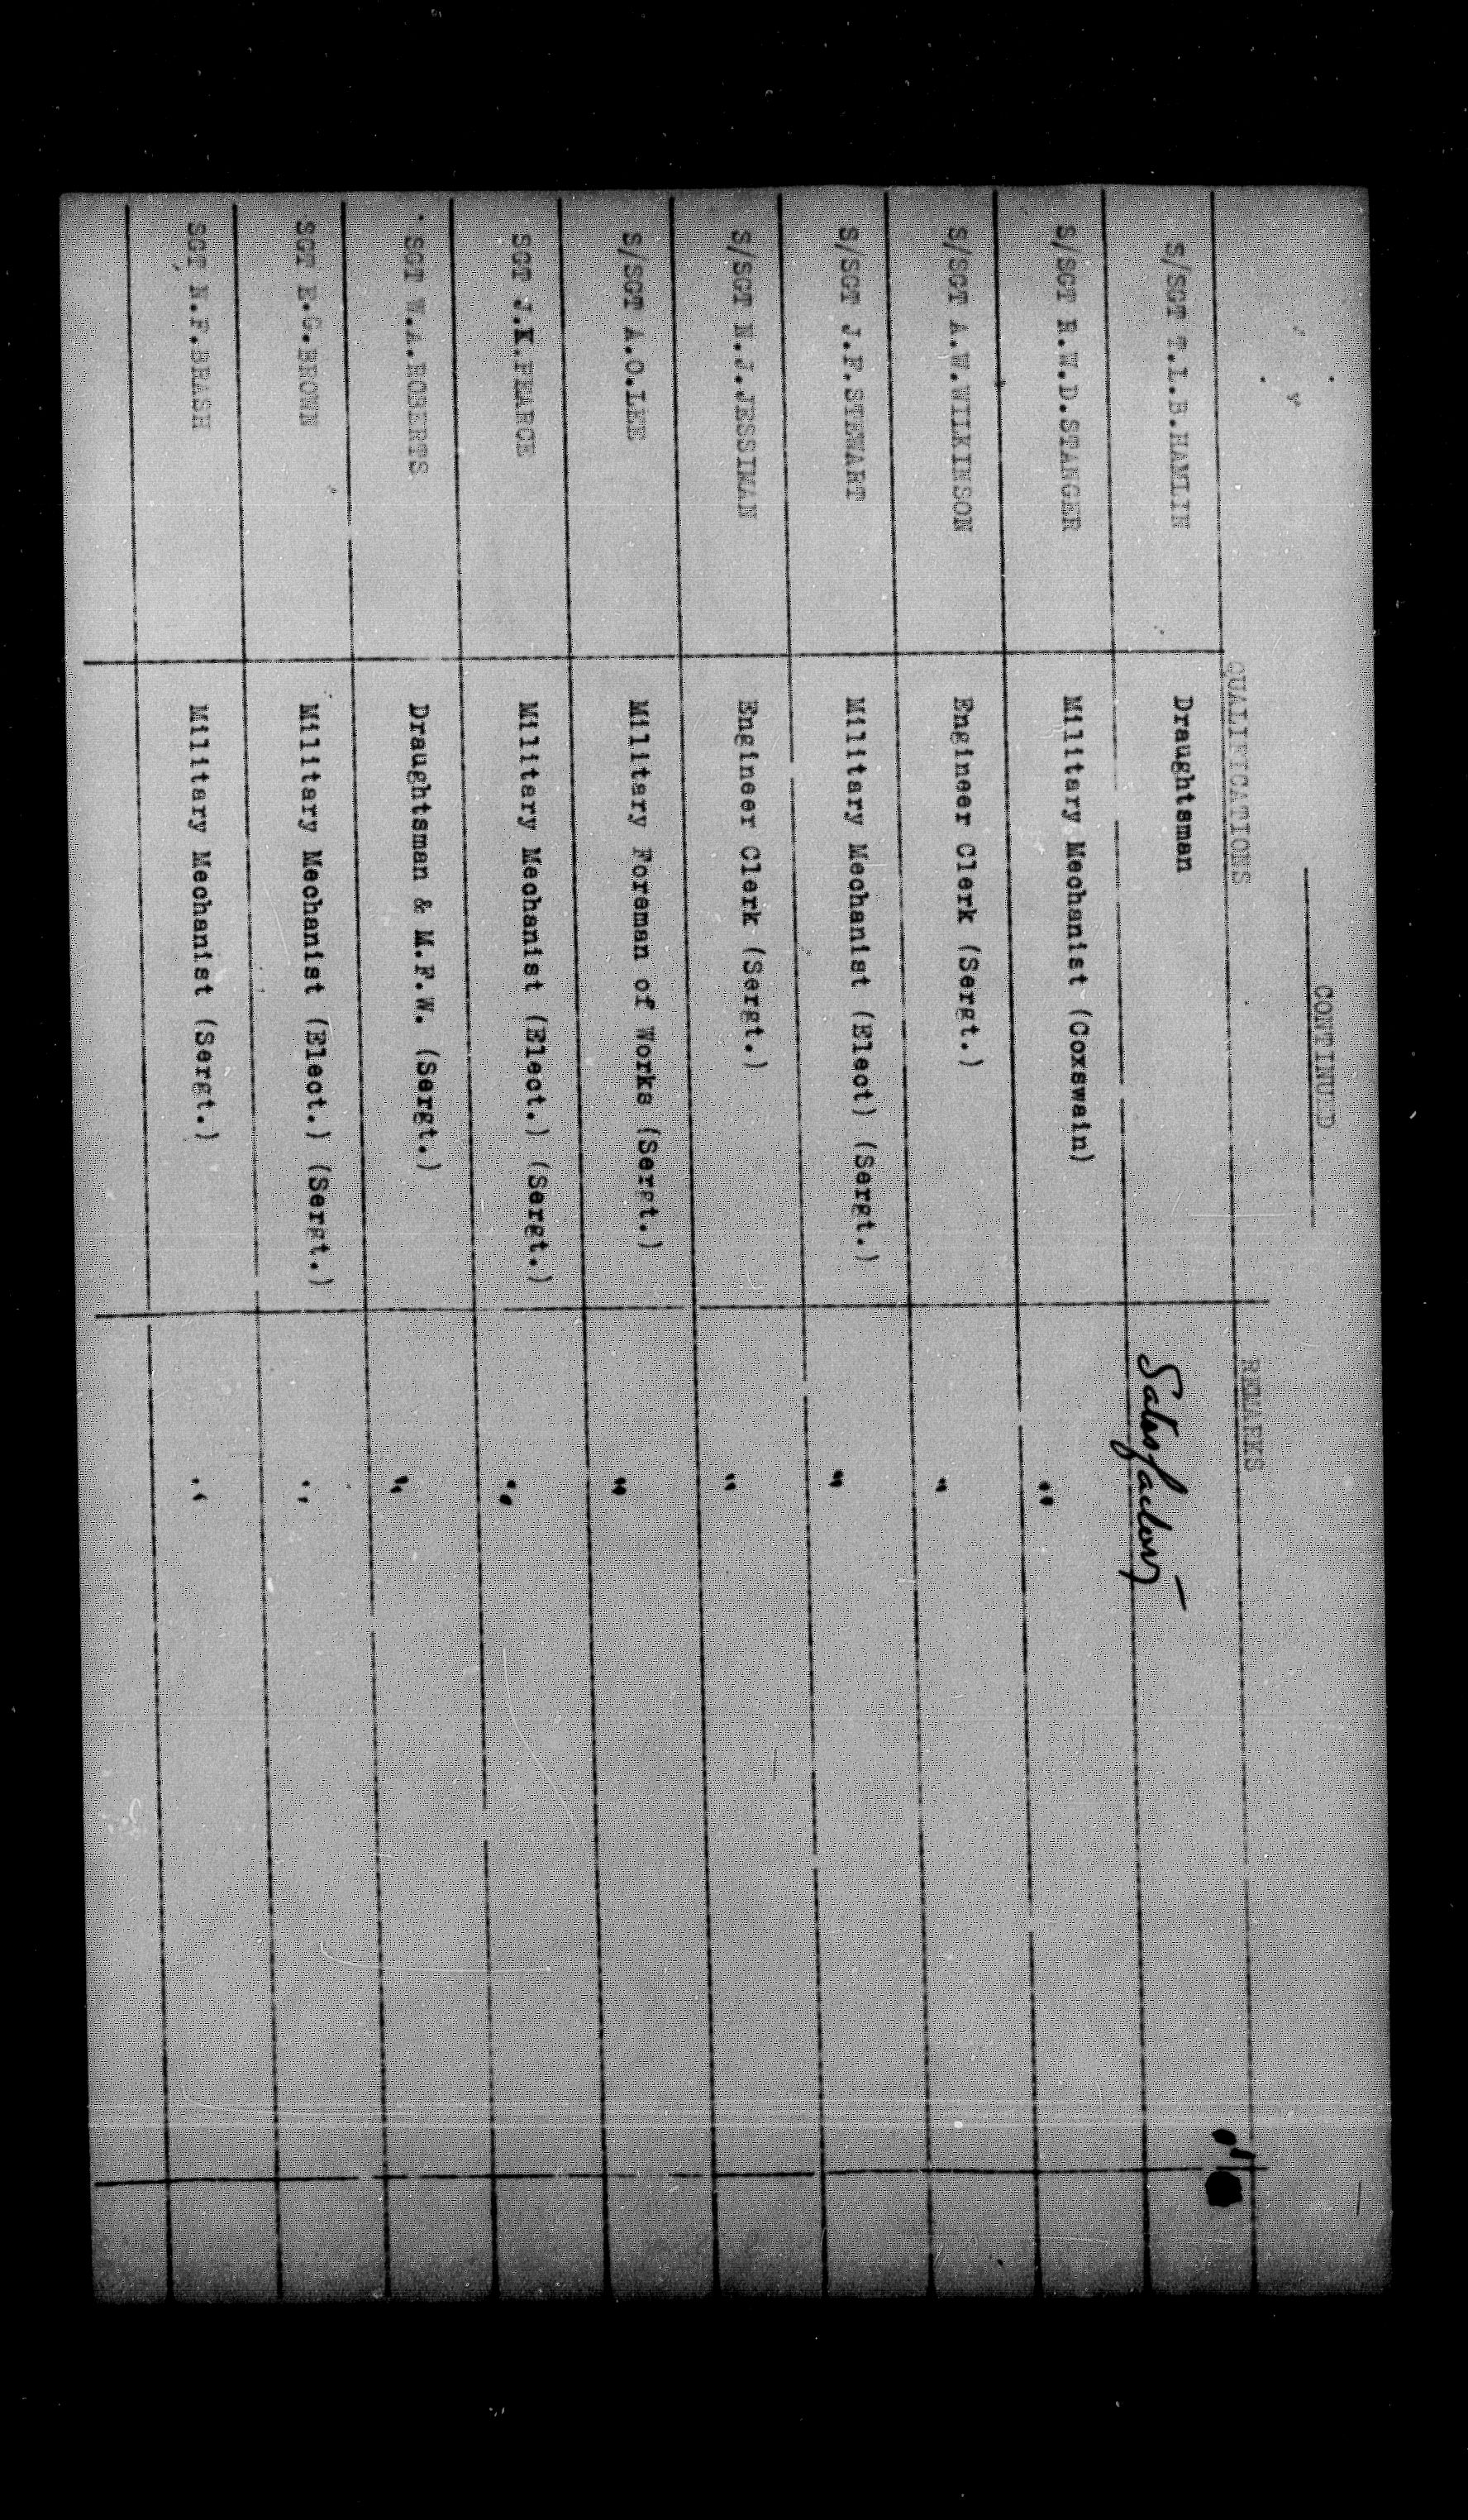 CONTINUED
QUALIFICATIONS REMARKS
S/SGT T.L.B.HAMLIN Draughtsman Satisfactory
S/SGT R.W.D.STANGER Military Mechanist (Coxswain) "
S/SGT A.W.WILKINSON Engineer Clerk (Sergt.) "
S/SGT J.F.STEWART Military Mechanist (Elect) (Sergt.) "
S/SGT N.J.JESSIMAN Engineer Clerk (Sergt.) "
S/SGT A.O.LEE Military Foreman of Works (Sergt.) "
SGT J.K.PEARCE Military Mechanist (Elect.) (Sergt.) "
SGT W.A.ROBERTS Draughtsman & M.F.W. (Sergt.) "
SGT E.G.BROWN Military Mechanist (Elect.) (Sergt.) "
SGT N.F.BRASH Military Mechanist (Sergt.) "